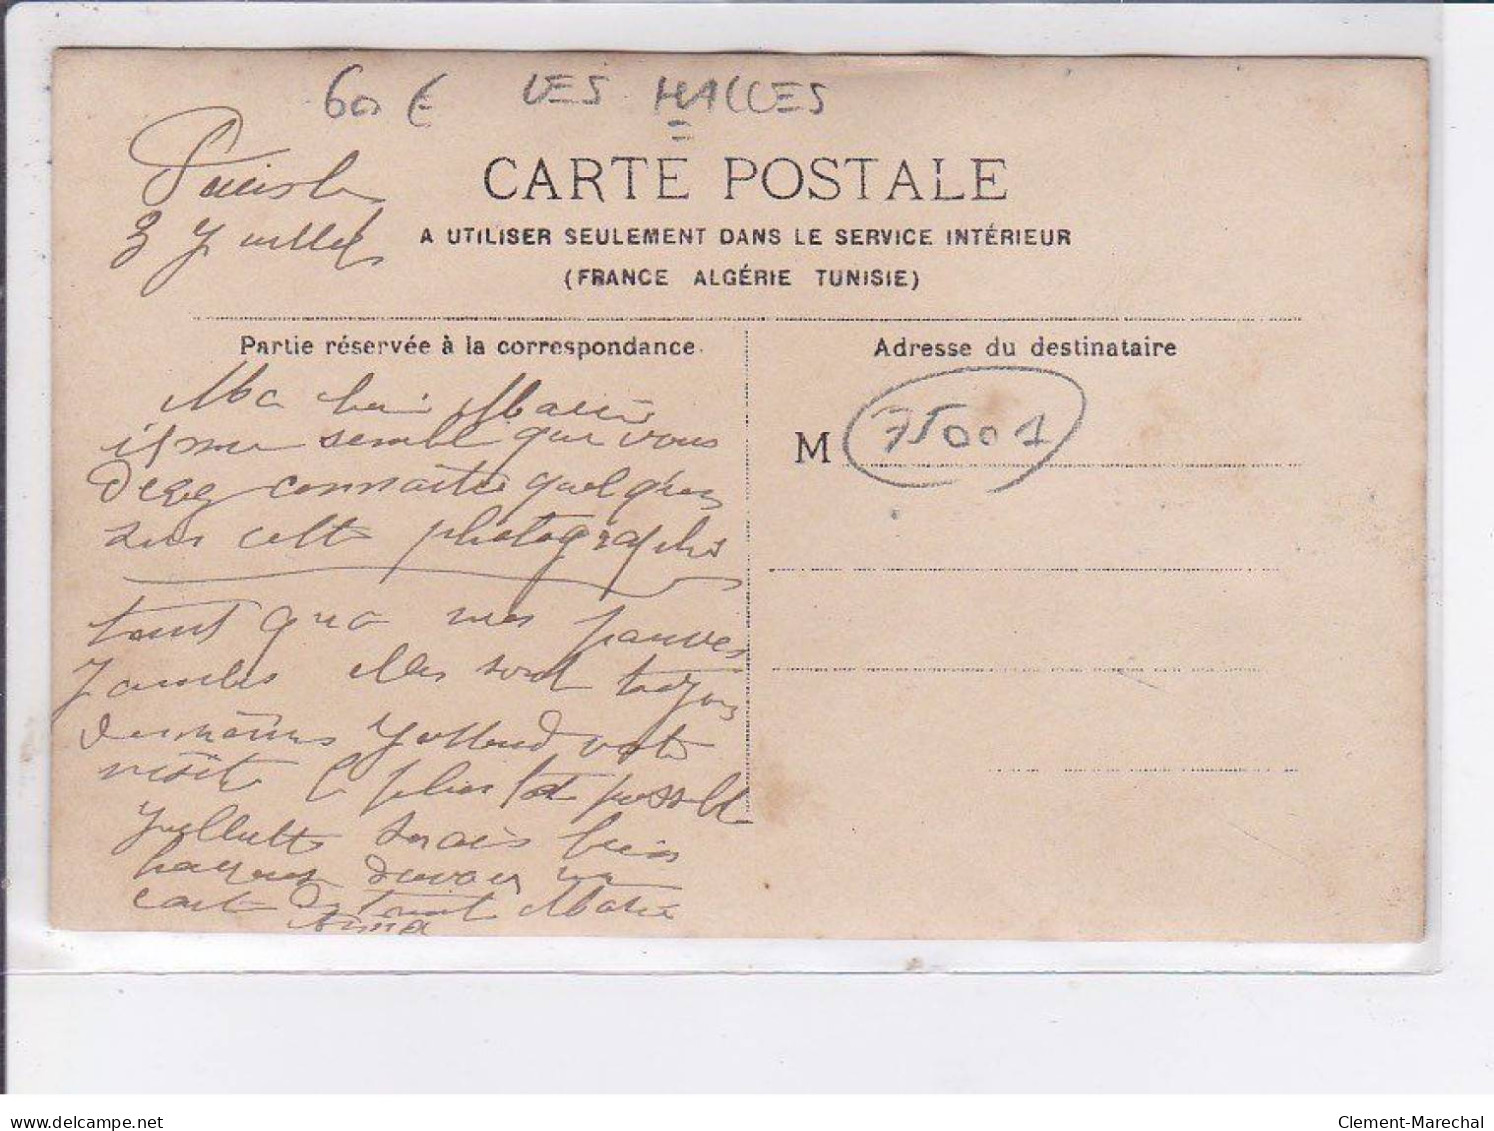 60 € LES HALLES
CARTE POSTALE
A UTILISER SEULEMENT DANS LE SERVICE INTÉRIEUR
(FRANCE ALGÉRIE TUNISIE)
Paris le
3 Juillet
Partie réservée à la correspondance
Ma Marie
il me semble que vous
devez connaitre quelqu'un
sur cette photographie
tant qu'a mes pauves
jambes elles sont toujours
votre
visite le plus tot possible
serais bien
un
Marie
Anna
Adresse du destinataire
M 75001
delcampe.net
Clement-Marechal